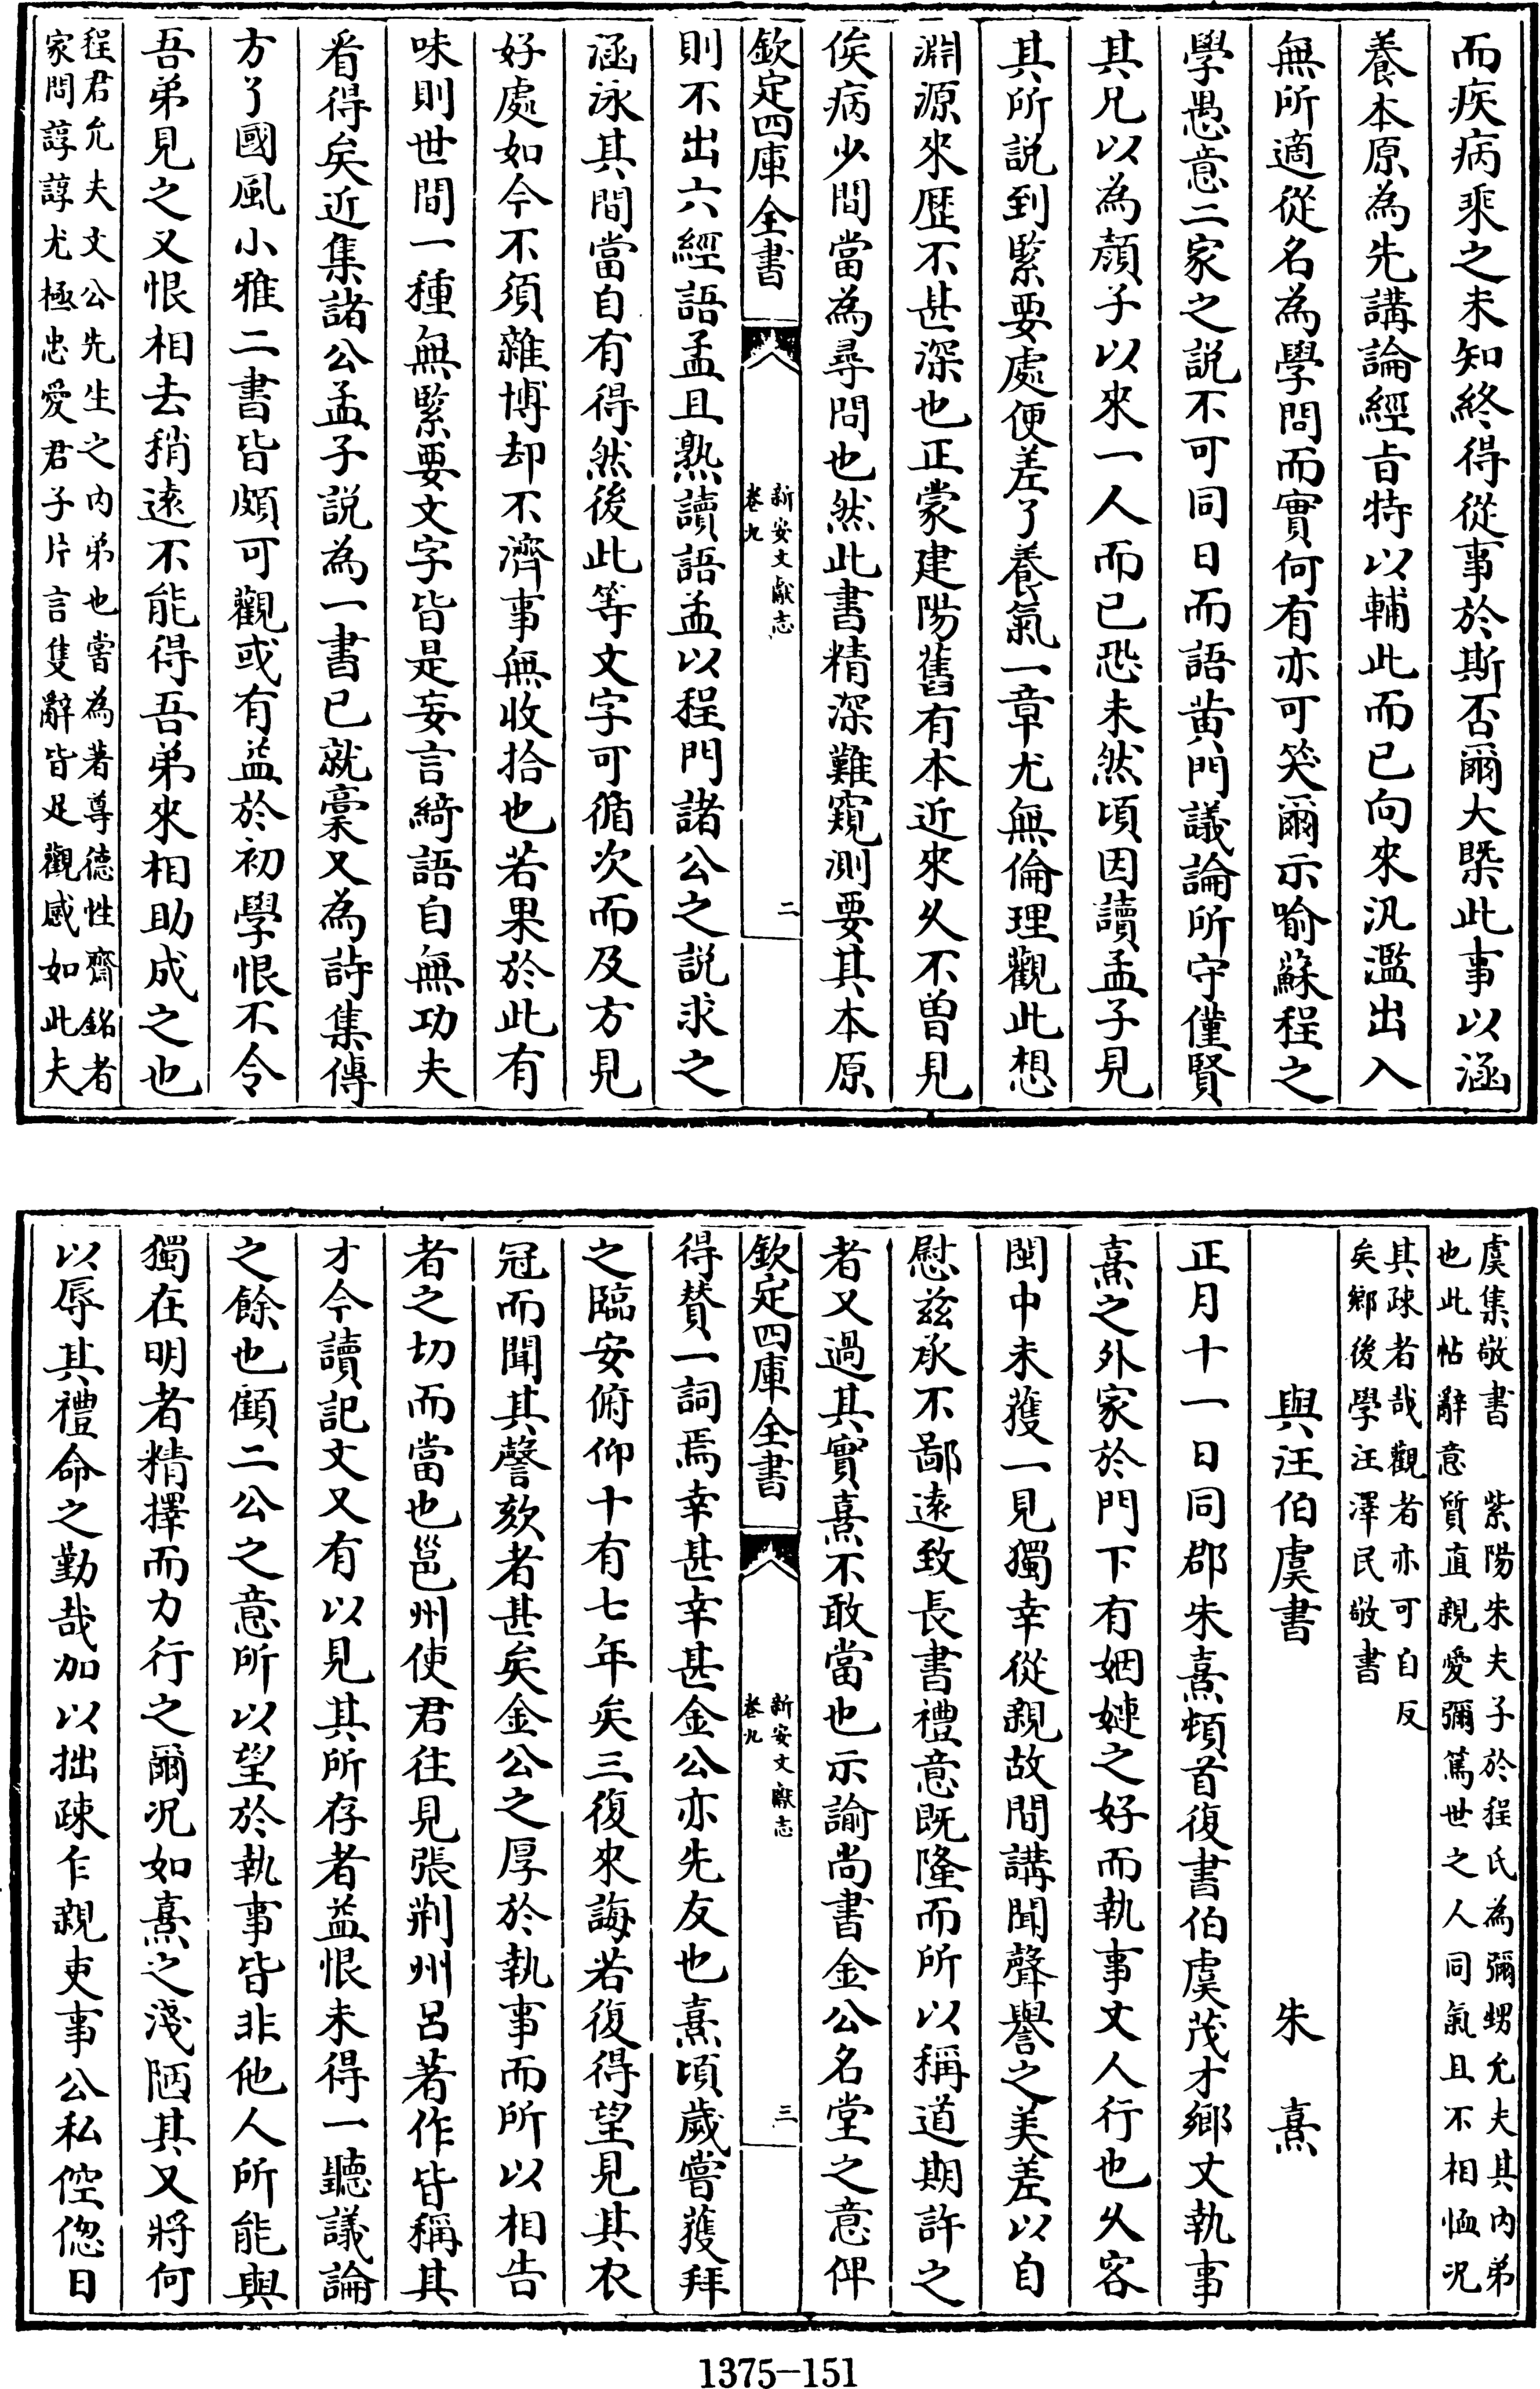 而疾病乘之未知終得從事於斯否爾大槩此事以涵
養本原為先講論經㫖特以輔此而已向來汎濫出入
無所適從名為學問而實何有亦可笑爾示喻蘇程之
學愚意二家之説不可同日而語黄門議論所守僅賢
其兄以為顔子以來一人而已恐未然頃因讀孟子見
其所説到緊要處便差了養氣一章尤無倫理觀此想
淵源來歴不甚深也正蒙建陽舊有本近來久不曽見
俟病少間當為尋問也然此書精深難窺測要其本原
欽定四庫全書
新安文獻志
卷九
二
則不出六經語孟且熟讀語孟以程門諸公之説求之
涵泳其間當自有得然後此等文字可循次而及方見
好處如今不須雜博却不濟事無收拾也若果於此有
味則世間一種無緊要文字皆是妄言綺語自無功夫
看得矣近集諸公孟子説為一書已就稾又為詩集傳
方了國風小雅二書皆頗可觀或有益於初學恨不令
吾弟見之又恨相去稍逺不能得吾弟來相助成之也
程君允夫文公先生之内弟也嘗為著尊德性齋銘者
家問諄諄尤極忠愛君子片言隻辭皆足觀感如此夫
虞集敬書　紫陽朱夫子於程氏為彌甥允夫其内弟
也此帖辭意質直親愛彌篤世之人同氣且不相恤况
其疎者哉觀者亦可自反
矣鄉後學汪澤民敬書
與汪伯虞書　朱熹
正月十一日同郡朱熹頓首復書伯虞茂才鄉丈執事
熹之外家於門下有姻婕之好而執事丈人行也久客
閩中未獲一見獨幸從親故間講聞聲譽之美差以自
慰兹承不鄙逺致長書禮意既隆而所以稱道期許之
者又過其實熹不敢當也示諭尚書金公名堂之意俾
欽定四庫全書
新安文獻志
卷九
三
得賛一詞焉幸甚幸甚金公亦先友也熹頃歳嘗獲拜
之臨安俯仰十有七年矣三復來誨若復得望見其衣
冠而聞其謦欬者甚矣金公之厚於執事而所以相告
者之切而當也邕州使君往見張荆州吕著作皆稱其
才今讀記文又有以見其所存者益恨未得一聽議論
之餘也顧二公之意所以望於執事皆非他人所能與
獨在明者精擇而力行之爾况如熹之淺陋其又將何
以辱其禮命之勤哉加以拙疎乍親吏事公私倥偬日
1375-151